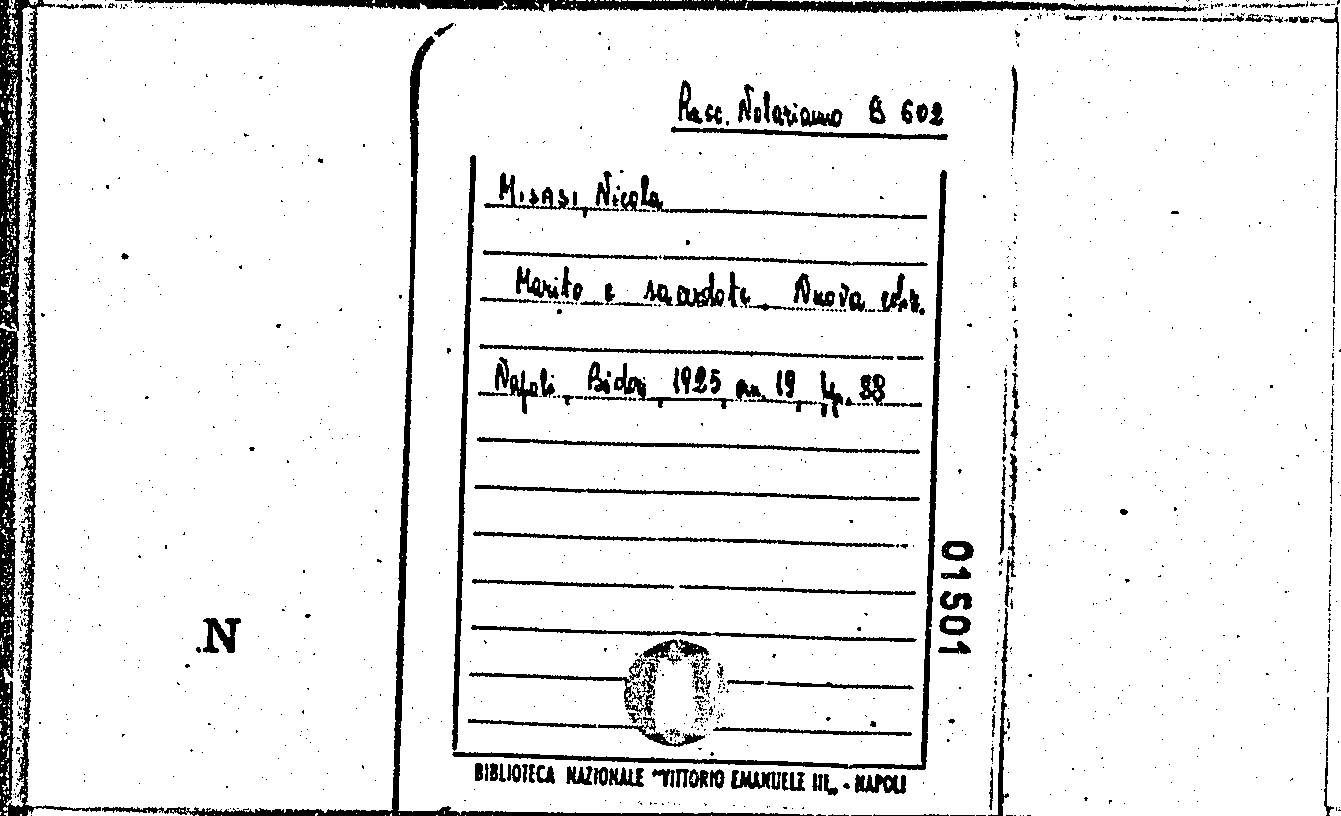 Racc. Notariamo B 602
MISASI, Nicola
Marito e sacerdote. Nuova ediz.
Napoli, Bideri, 1925, in. 19, pp. 88
01501
.N
BIBLIOTECA NAZIONALE "VITTORIO EMANUELE III„ - NAPOLI